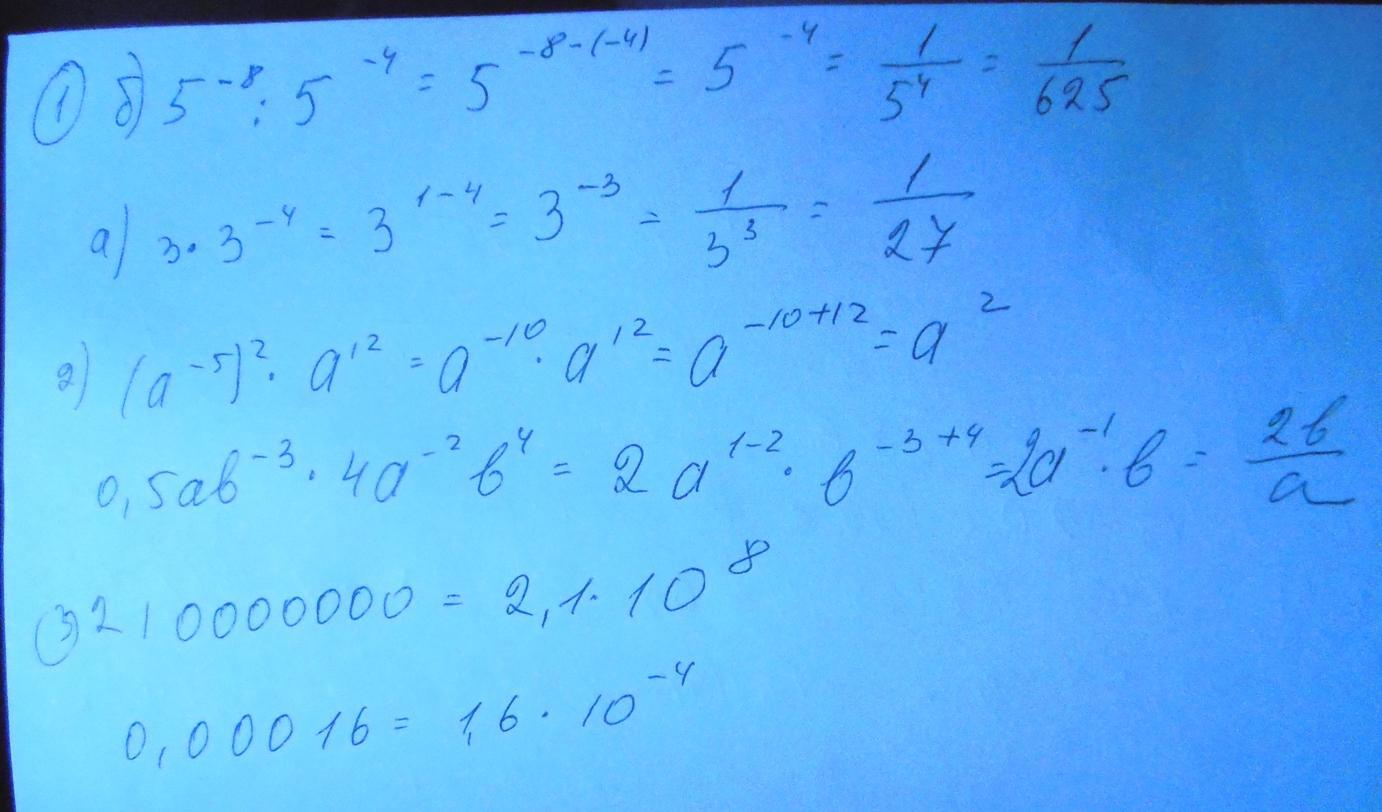 ① б) 5⁻⁸ : 5⁻⁴ = 5⁻⁸⁻⁽⁻⁴⁾ = 5⁻⁴ = 1/5⁴ = 1/625
а) 3 · 3⁻⁴ = 3¹⁻⁴ = 3⁻³ = 1/3³ = 1/27
2) (a⁻⁵)² · a¹² = a⁻¹⁰ · a¹² = a⁻¹⁰⁺¹² = a²
0,5ab⁻³ · 4a⁻²b⁴ = 2a¹⁻² · b⁻³⁺⁴ = 2a⁻¹ · b = 2b/a
③ 210000000 = 2,1 · 10⁸
0,00016 = 1,6 · 10⁻⁴